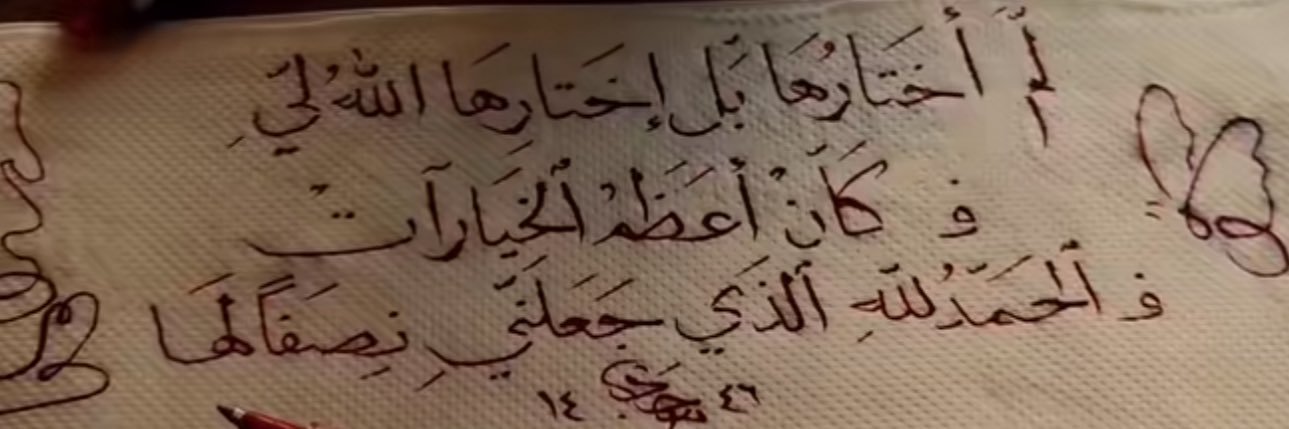 لَم أَختَارُهَا بَل إِختَارهَا اللّٰهُ لِي
فـ كَانْ أَعظَمُ ٱلخَيَارآت
فـ ٱلحَمَدُ لِلّٰهِ ٱلذَي جَعَلَنِي نِصفَاً لَهَا
١٤ ٤٦